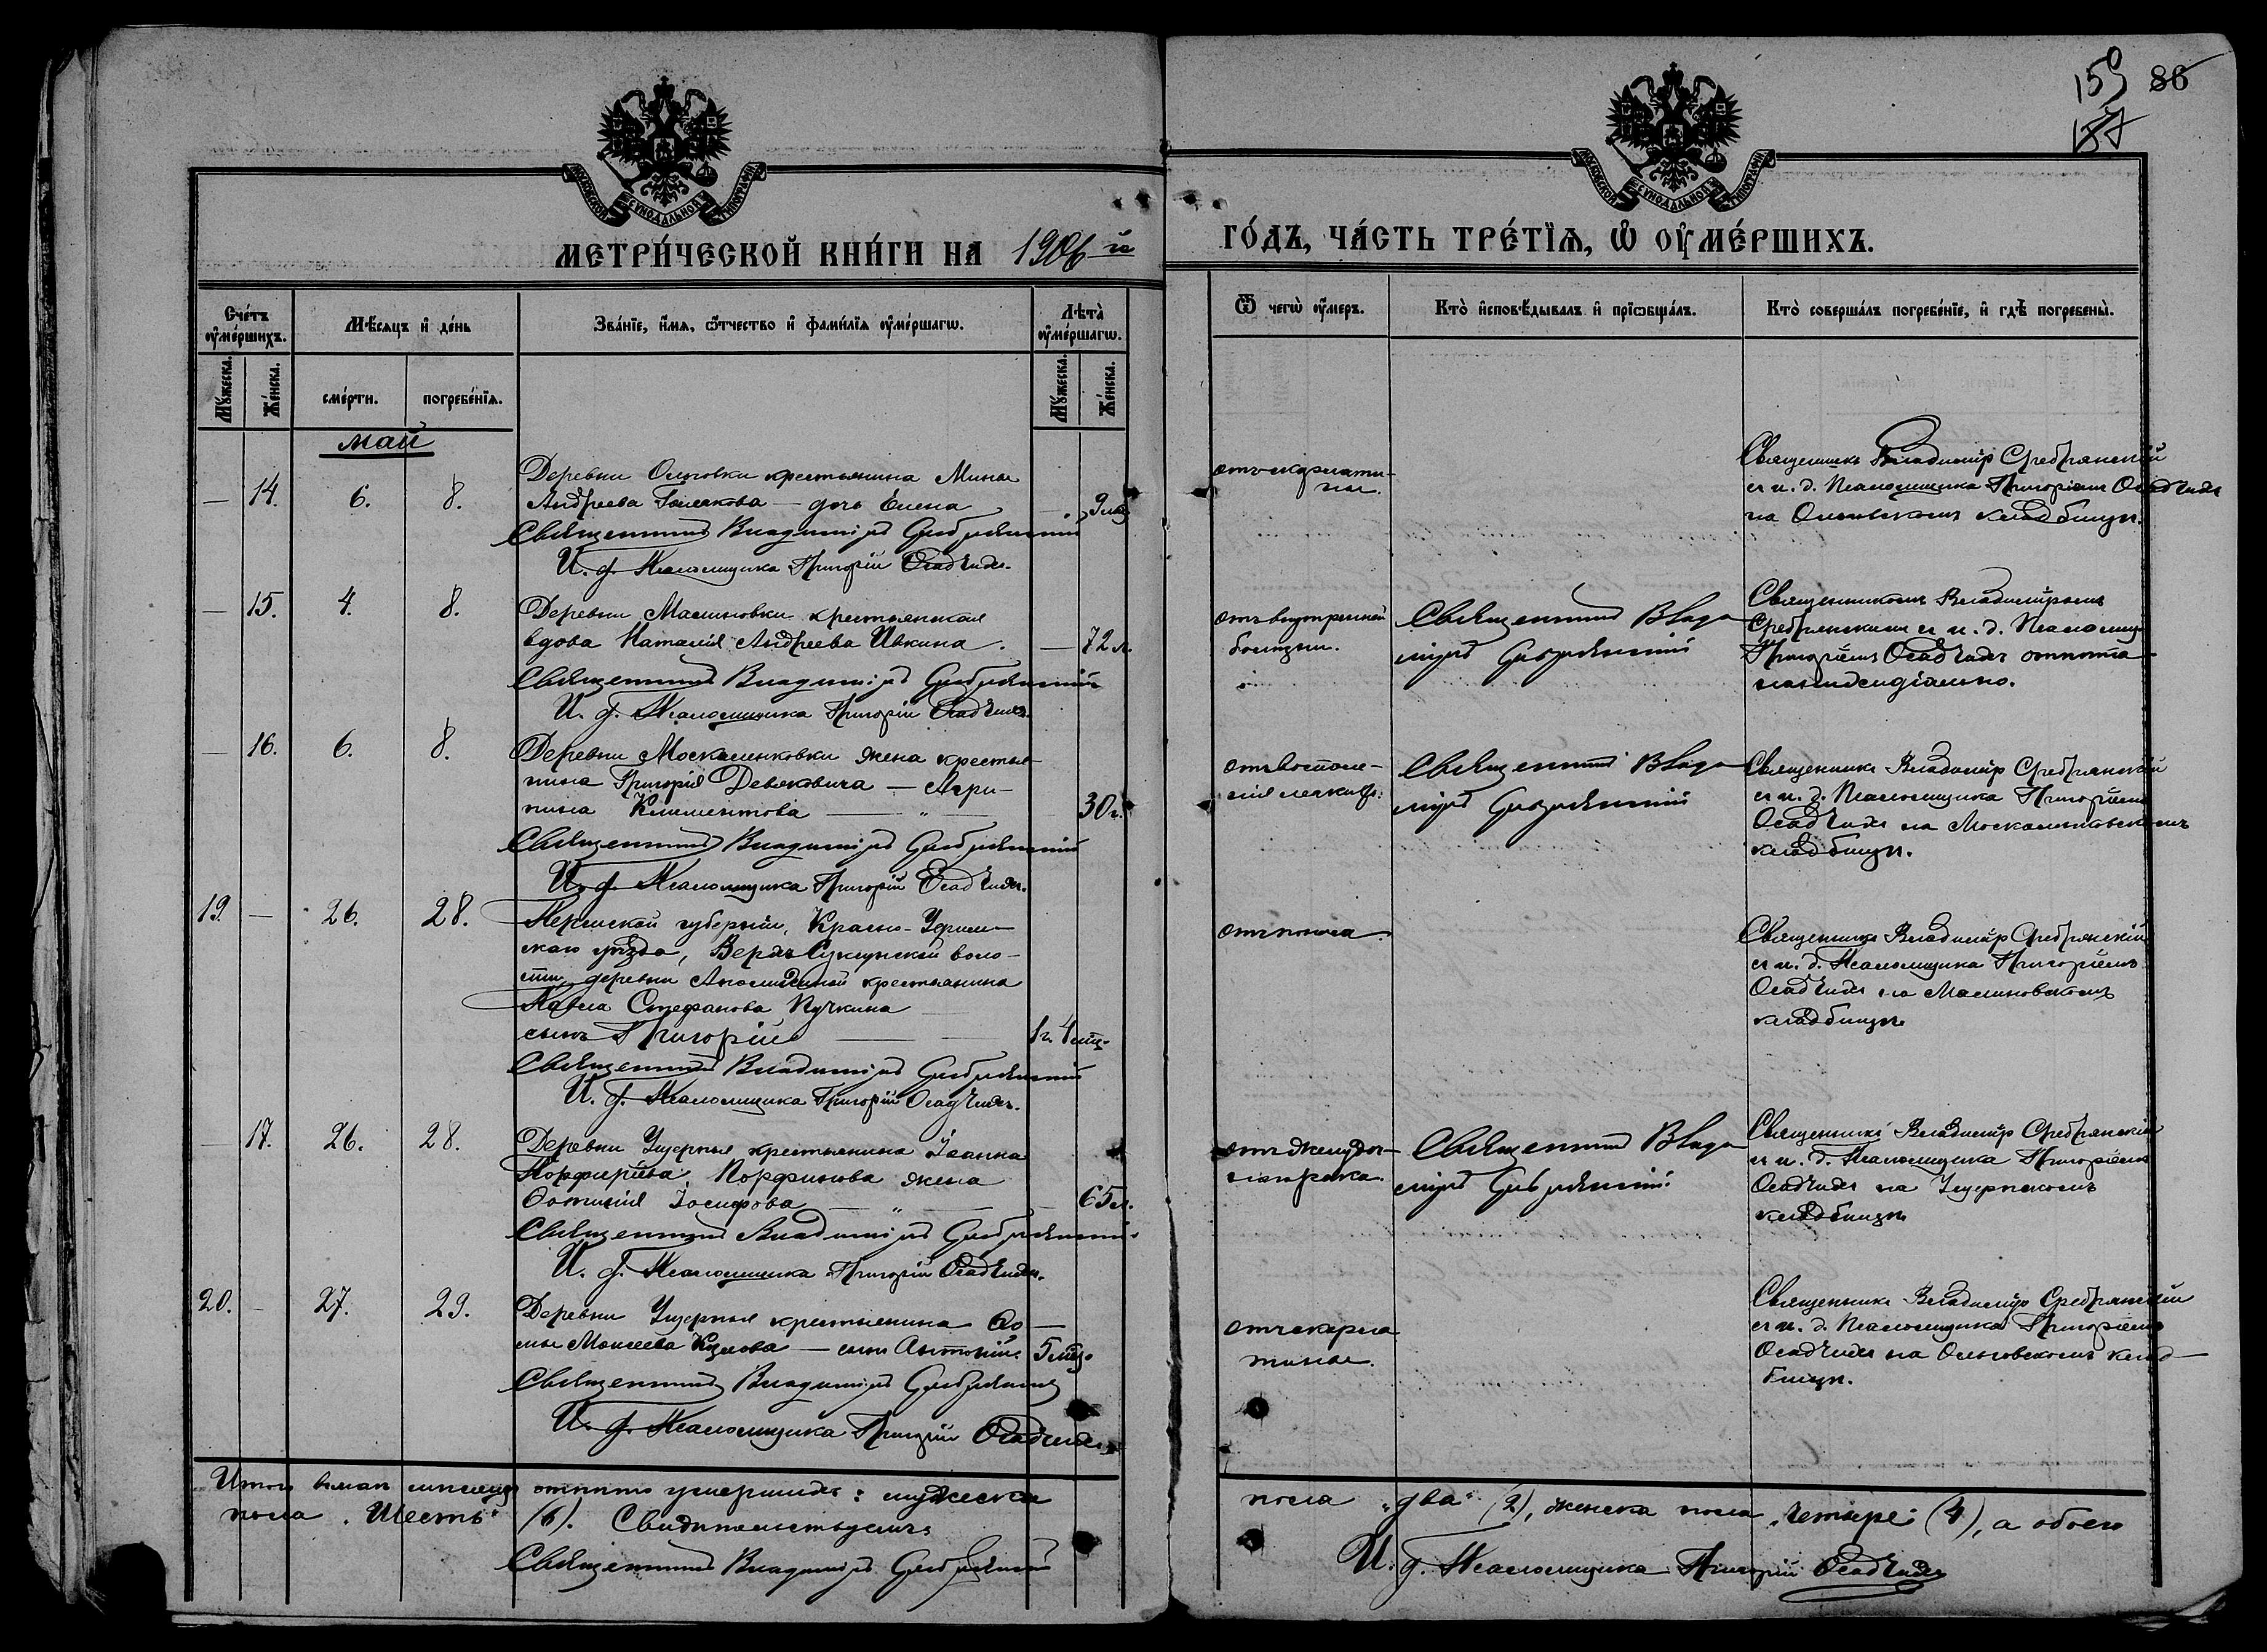 159 86
187
МОСКОВСКОЙ СѴНОДАЛЬНОЙ ТИПОГРАФІИ
МОСКОВСКОЙ СѴНОДАЛЬНОЙ ТИПОГРАФІИ
МЕТРИ́ЧЕСКОЙ КНИ́ГИ НА 1906-й ГО́ДЪ, ЧА́СТЬ ТРЕ́ТЇѦ, Ѡ҆ ОУ҆МЕ́РШИХЪ.
Сче́тъ оу҆ме́ршихъ.
Мꙋ́жеска.
Же́нска.
Мѣ́сяцъ и҆ де́нь
сме́рти.
погребе́нїѧ.
Зва́нїе, и҆́мя, ѻ҆́тчество и҆ фами́лїѧ оу҆ме́ршагѡ.
Лѣ̀та оу҆ме́ршагѡ.
Мꙋ́жеска.
Же́нска.
Ѿ чегѡ̀ оу҆́меръ.
Кто̀ и҆сповѣ́дывалъ и҆ прїѡбща́лъ.
Кто̀ соверша́лъ погребе́нїе, и҆ гдѣ̀ погребены̀.
май
— 14. 6. 8.
Деревни Ольховки крестьянина Мины
Андреева — дочь Елена — 9 мѣс
Священникъ Владиміръ Сребрянскій
И. д. Псаломщика Григорій Осадчихъ.
отъ скарлати-
ны.
Священникъ Владиміръ Сребрянскій
съ и. д. Псаломщика Григоріемъ Осадчихъ
на Ольховскомъ кладбищѣ.
— 15. 4. 8.
Деревни Малиновки крестьянская
вдова Наталія Андреева Ивкина. — 72 л.
Священникъ Владиміръ Сребрянскій
И. д. Псаломщика Григорій Осадчихъ.
отъ внутренней
болѣзни.
Священникъ Влади-
міръ Сребрянскій
Священникомъ Владиміромъ
Сребрянскимъ съ и. д. Псаломщ
Григоріемъ Осадчихъ отпѣта
— 16. 6. 8.
Деревни Москаленковки жена крестья-
нина Григорія Девяковича — Агри-
пина Климентова — 30 г.
Священникъ Владиміръ Сребрянскій
И. д. Псаломщика Григорій Осадчихъ.
отъ воспале-
нія легкихъ.
Священникъ Влади-
міръ Сребрянскій
Священникъ Владиміръ Сребрянскій
съ и. д. Псаломщика Григоріемъ
Осадчихъ на Москаленковскомъ
кладбищѣ.
19. — 26. 28.
Пермской губерніи, Красно-Уфим-
скаго уѣзда, Верхъ Суксунской воло-
сти, деревни крестьянина
Павла Стефанова Пучкина
сынъ Григорій — 1 г. 4 мѣс.
Священникъ Владиміръ Сребрянскій
И. д. Псаломщика Григорій Осадчихъ.
отъ поноса.
Священникъ Владиміръ Сребрянскій
съ и. д. Псаломщика Григоріемъ
Осадчихъ на Малиновскомъ
кладбищѣ
— 17. 26. 28.
Деревни Ущерпья крестьянина Іоанна
Порфирьева Порфинова жена
Фотинія Іосифова — 65 л.
Священникъ Владиміръ Сребрянскій
И. д. Псаломщика Григорій Осадчихъ.
отъ желудоч-
наго рака.
Священникъ Влади-
міръ Сребрянскій
Священникъ Владиміръ Сребрянскій
съ и. д. Псаломщика Григоріемъ
Осадчихъ на Ущерпскомъ
кладбищѣ
20. — 27. 29.
Деревни Ущерпья крестьянина Ѳо-
мы Моисеева — сынъ Антоній. 5 мѣс.
Священникъ Владиміръ Сребрянскій
И. д. Псаломщика Григорій Осадчихъ
отъ скарла
тины.
Священникъ Владиміръ Сребрянскій
съ и. д. Псаломщика Григоріемъ
Осадчихъ на Ольховскомъ клад-
бищѣ.
Итого въ маѣ мѣсяцѣ отпѣто умершихъ: мужеска пола „два“ (2), женска пола „четыре“ (4), а обоего
пола „Шесть“ (6). Свидѣтельствуемъ:
Священникъ Владиміръ Сребрянскій
И. д. Псаломщика Григорій Осадчихъ